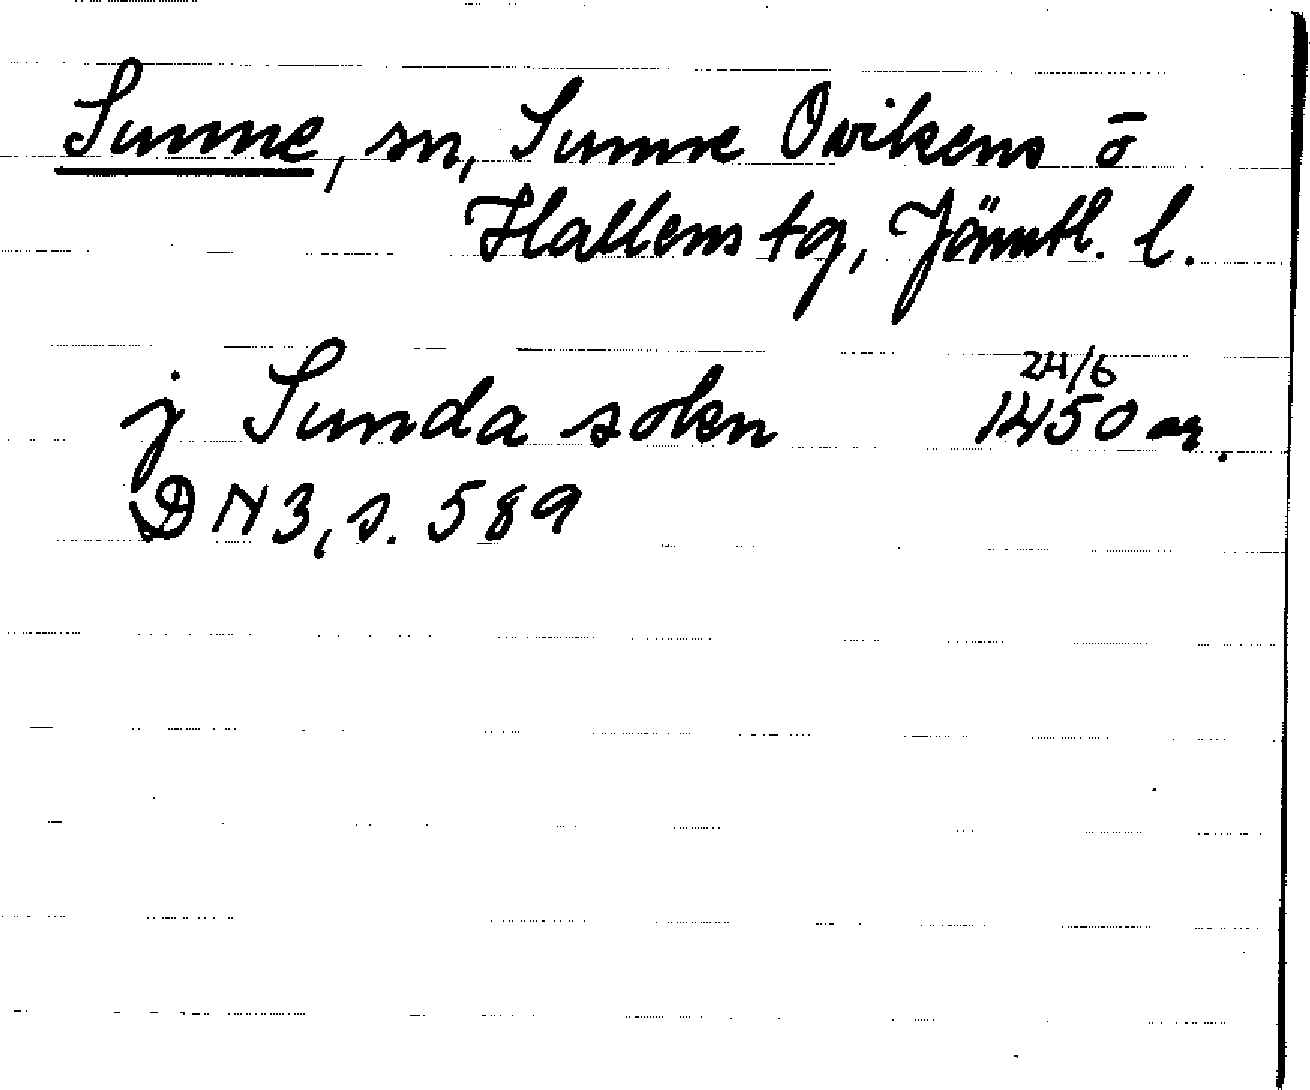 Sunne, sn, Sunne Ovikens o
Hallens tg, Jämtl. l.
j Sunda sokn 24/6 1450 or.
DN 3, s. 589